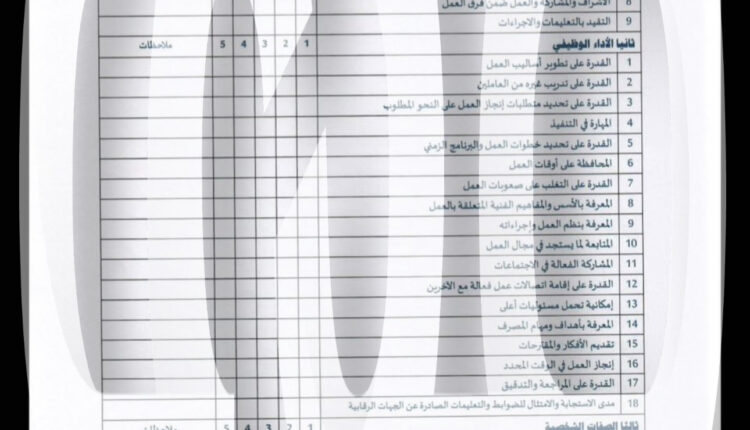 8 الاشراف والمشاركة والعمل ضمن فرق العمل
9 التقيد بالتعليمات والاجراءات
ثانيا الأداء الوظيفي 1 2 3 4 5 ملاحظات
1 القدرة على تطوير أساليب العمل
2 القدرة على تدريب غيره من العاملين
3 القدرة على تحديد متطلبات إنجاز العمل على النحو المطلوب
4 المهارة في التنفيذ
5 القدرة على تحديد خطوات العمل والبرنامج الزمني
6 المحافظة على أوقات العمل
7 القدرة على التغلب على صعوبات العمل
8 المعرفة بالأسس والمفاهيم الفنية المتعلقة بالعمل
9 المعرفة بنظم العمل وإجراءاته
10 المتابعة لما يستجد في مجال العمل
11 المشاركة الفعالة في الاجتماعات
12 القدرة على إقامة اتصالات عمل فعالة مع الآخرين
13 إمكانية تحمل مسئوليات أعلى
14 المعرفة بأهداف ومهام المصرف
15 تقديم الأفكار والمقترحات
16 إنجاز العمل في الوقت المحدد
17 القدرة على المراجعة والتدقيق
18 مدى الاستجابة والامتثال للضوابط والتعليمات الصادرة عن الجهات الرقابية
ثالثا الصفات الشخصية 1 2 3 4 5 ملاحظات